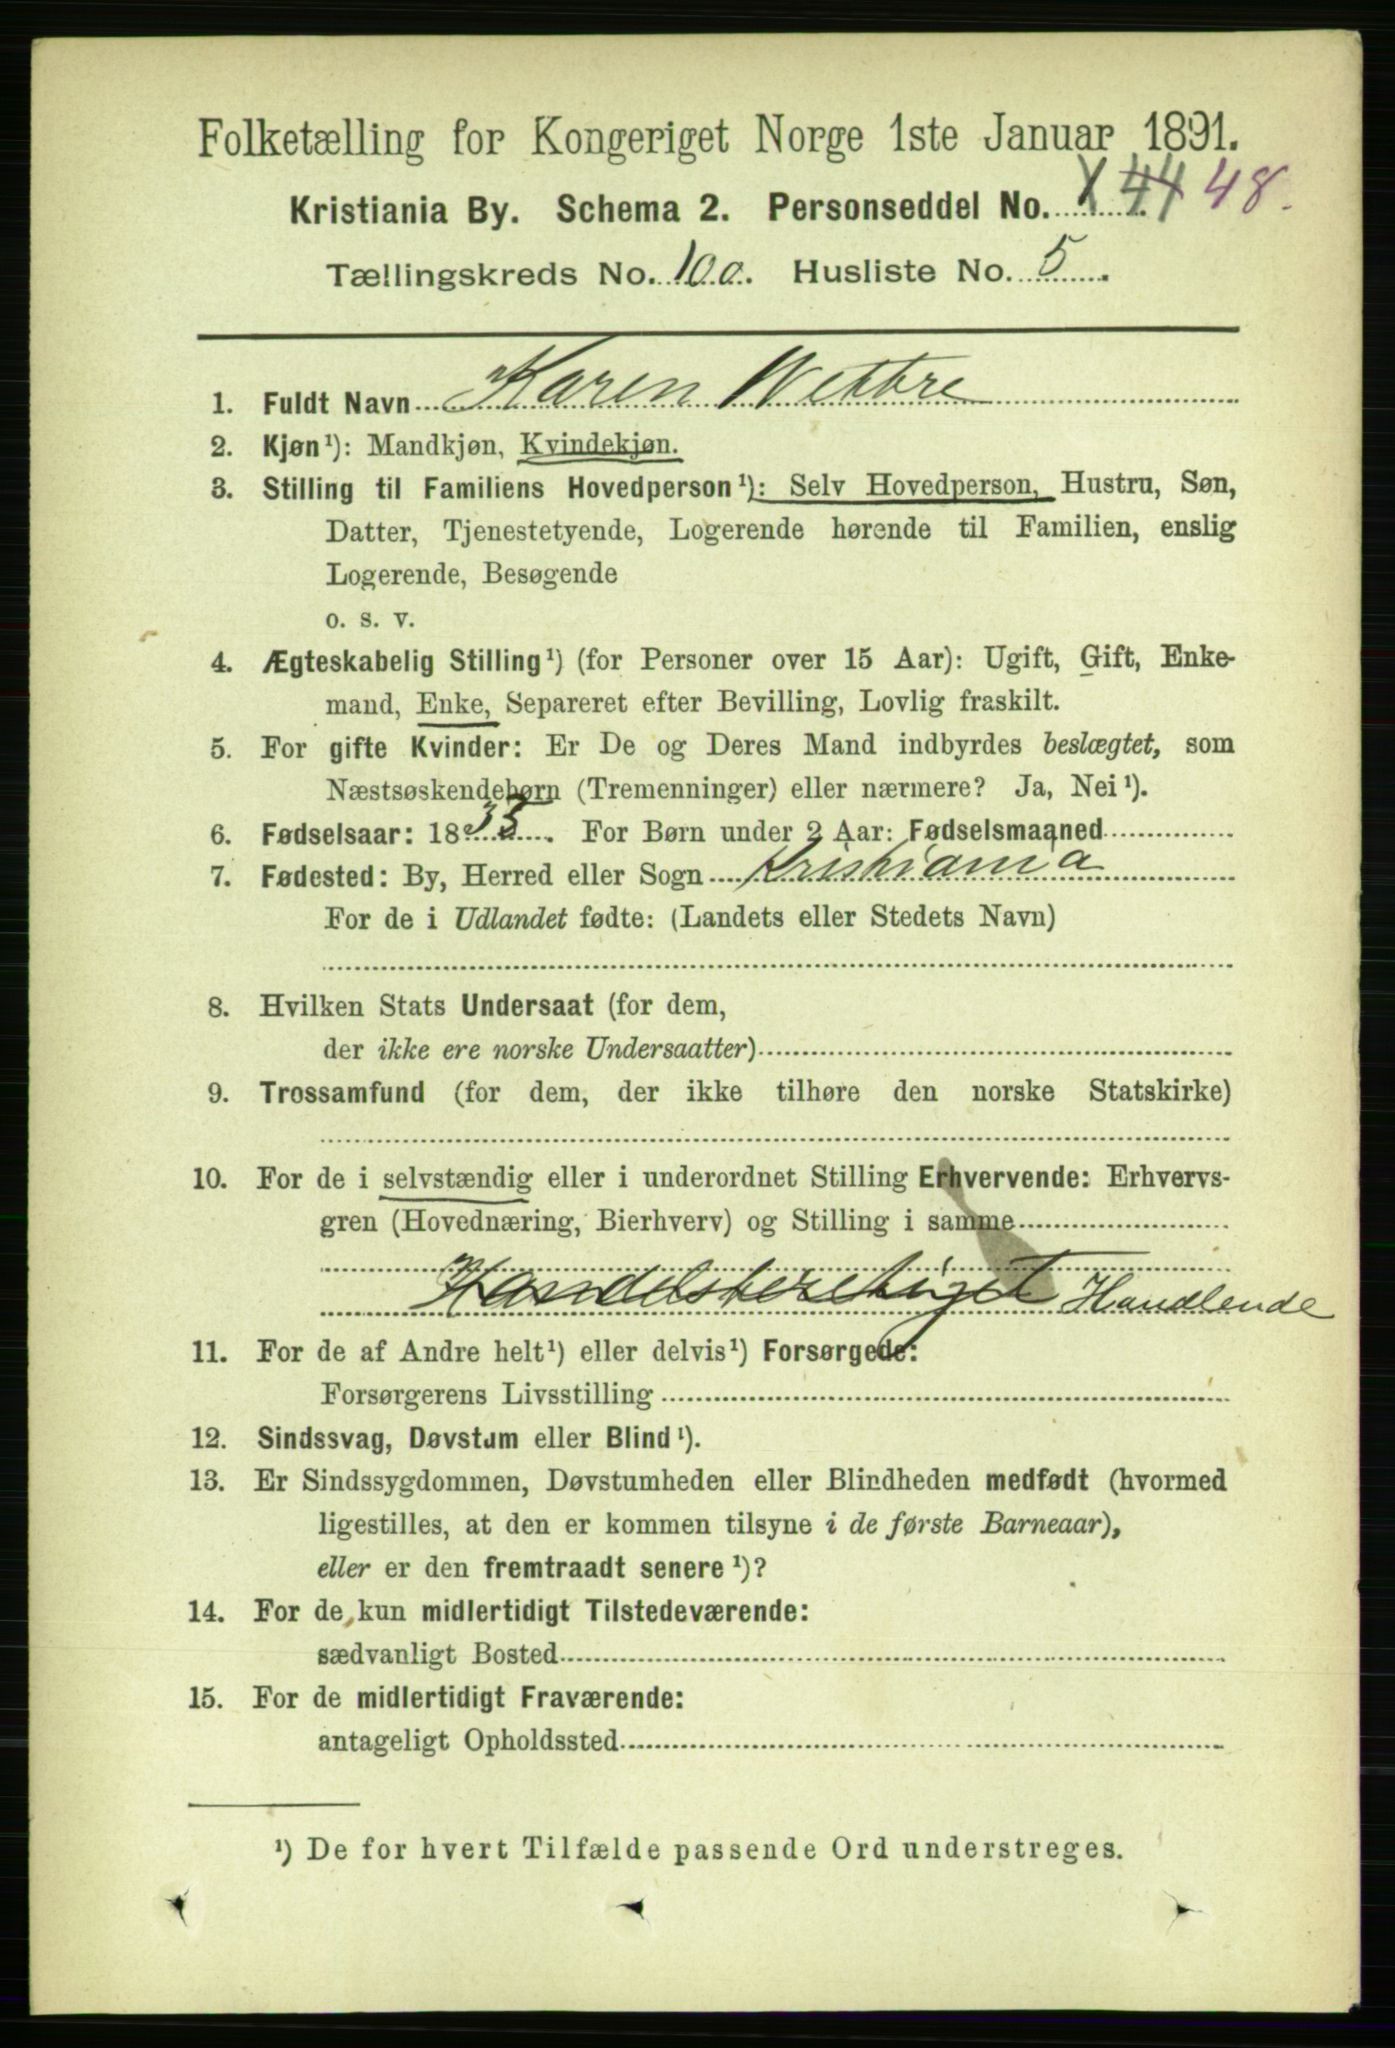 Folketælling for Kongeriget Norge 1ste Januar 1891.
Kristiania By. Schema 2. Personseddel No. 44 48.
Tællingskreds No. 10 a. Husliste No. 5.
1. Fuldt Navn Karen Wettre
2. Kjøn¹): Mandkjøn, Kvindekjøn.
3. Stilling til Familiens Hovedperson¹): Selv Hovedperson, Hustru, Søn,
Datter, Tjenestetyende, Logerende hørende til Familien, enslig
Logerende, Besøgende
o. s. v.
4. Ægteskabelig Stilling¹) (for Personer over 15 Aar): Ugift, Gift, Enke-
mand, Enke, Separeret efter Bevilling, Lovlig fraskilt.
5. For gifte Kvinder: Er De og Deres Mand indbyrdes beslægtet, som
Næstsøskendebørn (Tremenninger) eller nærmere? Ja, Nei¹).
6. Fødselsaar: 1835. For Børn under 2 Aar: Fødselsmaaned
7. Fødested: By, Herred eller Sogn Kristiania
For de i Udlandet fødte: (Landets eller Stedets Navn)
8. Hvilken Stats Undersaat (for dem,
der ikke ere norske Undersaatter)
9. Trossamfund (for dem, der ikke tilhøre den norske Statskirke)
10. For de i selvstændig eller i underordnet Stilling Erhvervende: Erhvervs-
gren (Hovednæring, Bierhverv) og Stilling i samme
Handelsberetiget Handlende
11. For de af Andre helt¹) eller delvis¹) Forsørgede:
Forsørgerens Livsstilling
12. Sindssvag, Døvstum eller Blind¹).
13. Er Sindssygdommen, Døvstumheden eller Blindheden medfødt (hvormed
ligestilles, at den er kommen tilsyne i de første Barneaar),
eller er den fremtraadt senere¹)?
14. For de kun midlertidigt Tilstedeværende:
sædvanligt Bosted
15. For de midlertidigt Fraværende:
antageligt Opholdssted
¹) De for hvert Tilfælde passende Ord understreges.